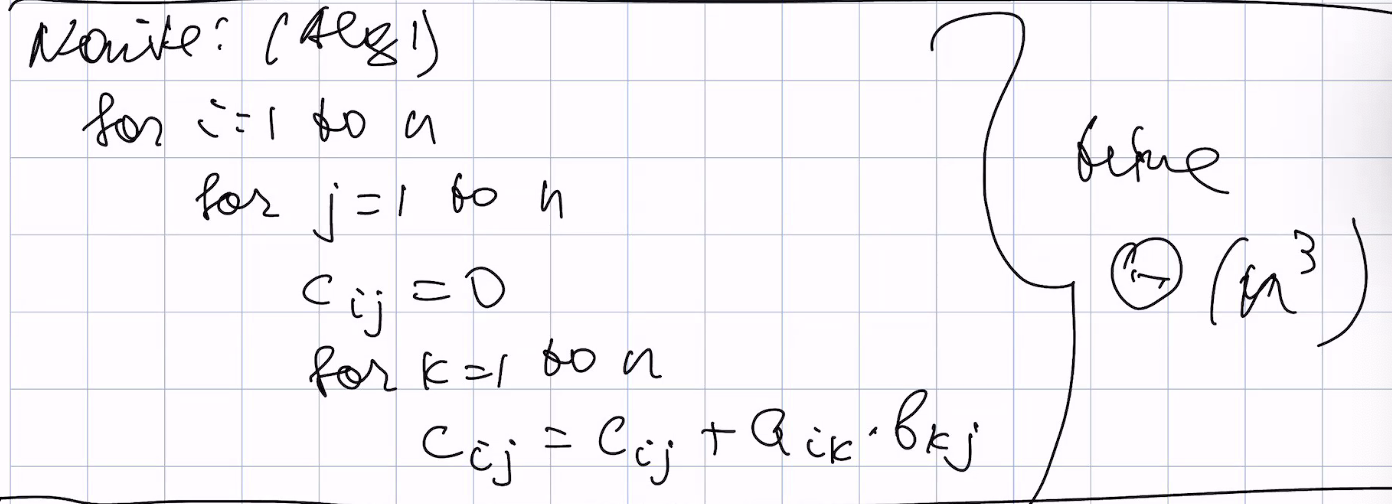 Naive: (Alg 1)
for i=1 to n
for j=1 to n
c_ij = 0
for k=1 to n
c_ij = c_ij + a_ik · b_kj
time
Θ(n³)